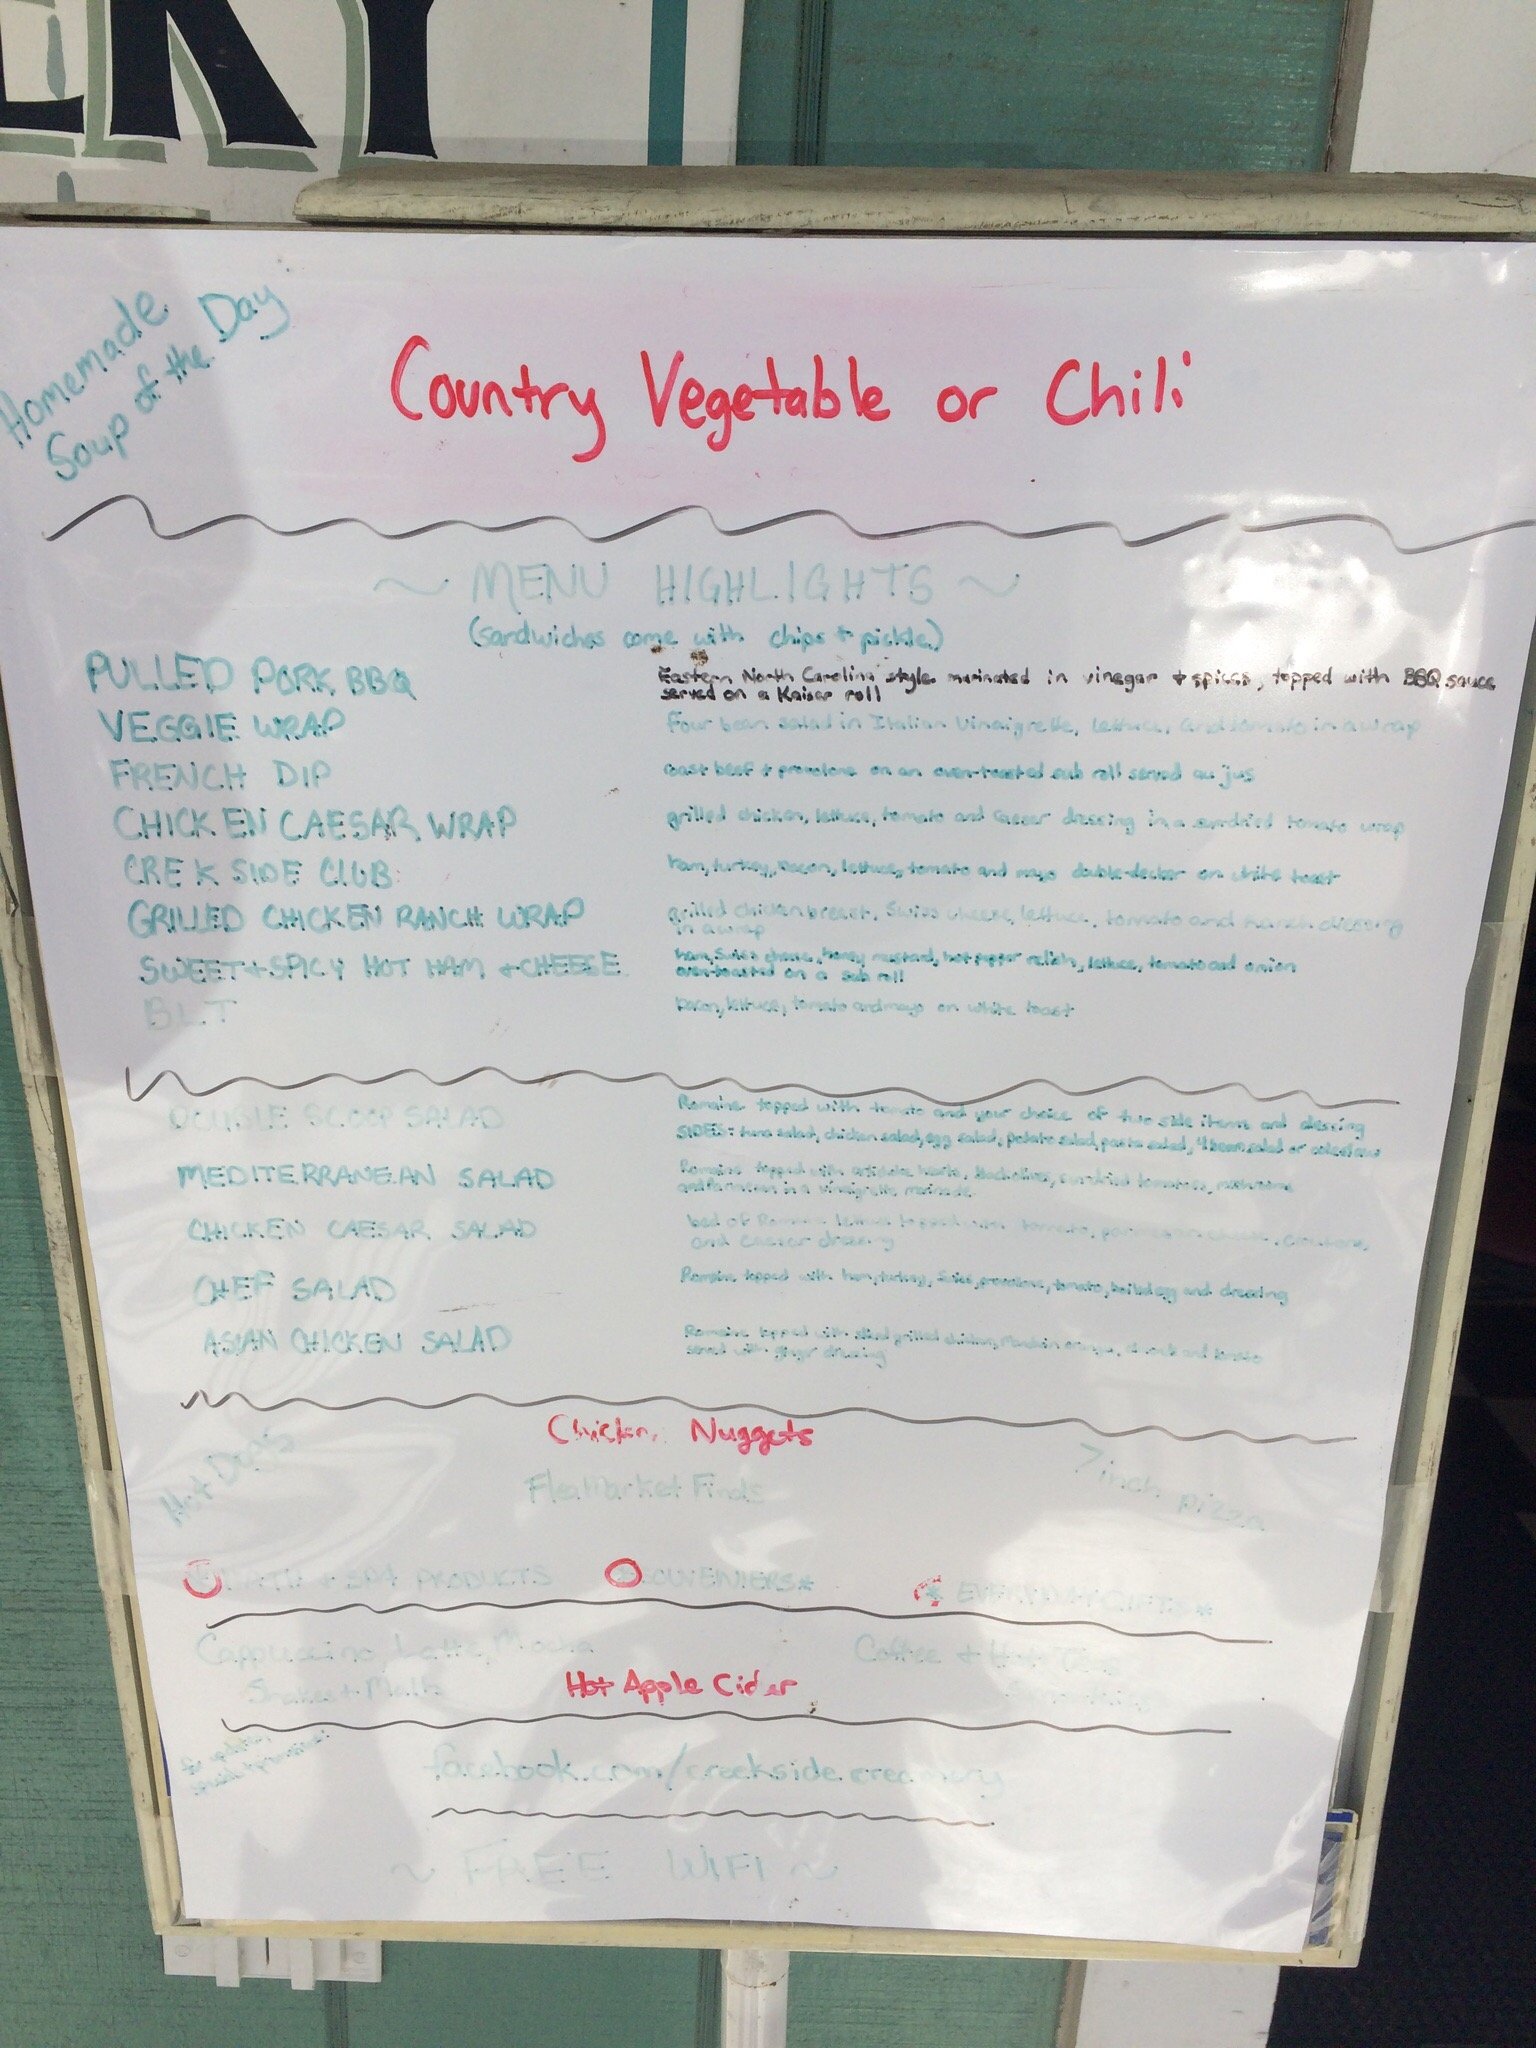 ERY
Homemade
Soup of the Day
Country Vegetable or Chili
~ MENU HIGHLIGHTS ~
(sandwiches come with chips + pickle)
PULLED PORK BBQ
Eastern North Carolina style marinated in vinegar + spices, topped with BBQ sauce
served on a Kaiser roll
VEGGIE WRAP
Four bean salad in Italian Vinaigrette, lettuce, and tomato in a wrap
FRENCH DIP
roast beef + provolone on an oven-toasted sub roll served au jus
CHICKEN CAESAR WRAP
grilled chicken, lettuce, tomato and Caeser dressing in a sundried tomato wrap
CREKSIDE CLUB
ham, turkey, bacon, lettuce, tomato and mayo double-decker on white toast
GRILLED CHICKEN RANCH WRAP
grilled chicken breast, Swiss cheese, lettuce, tomato and Ranch dressing
in a wrap
SWEET + SPICY HOT HAM + CHEESE
ham, Swiss cheese, honey mustard, hot pepper relish, lettuce, tomato and onion
oven-toasted on a sub roll
BLT
bacon, lettuce, tomato and mayo on white toast
DOUBLE SCOOP SALAD
Romaine topped with tomato and your choice of two side items and dressing
SIDES: tuna salad, chicken salad, egg salad, potato salad, pasta salad, 4 bean salad or coleslaw
MEDITERRANEAN SALAD
Romaine topped with artichoke hearts, black olives, sundried tomatoes, mushrooms
in a vinaigrette marinade
CHICKEN CAESAR SALAD
bed of Romaine lettuce topped with tomato, parmesan cheese, croutons,
and Caeser dressing
CHEF SALAD
Romaine topped with ham, turkey, Swiss, provolone, tomato, boiled egg and dressing
ASIAN CHICKEN SALAD
Romaine topped with sliced grilled chicken, Mandarin oranges, almonds and tomato
served with ginger dressing
Chicken Nuggets
Hot Dogs
Flea Market Finds
7 inch pizza
BATH + SPA PRODUCTS
SOUVENIERS*
* EVERYDAY GIFTS *
Cappuccino Latte, Mocha
Coffee + Hot Teas
Shakes + Malts
Hot Apple Cider
facebook.com/creekside.creamery
~ FREE WIFI ~